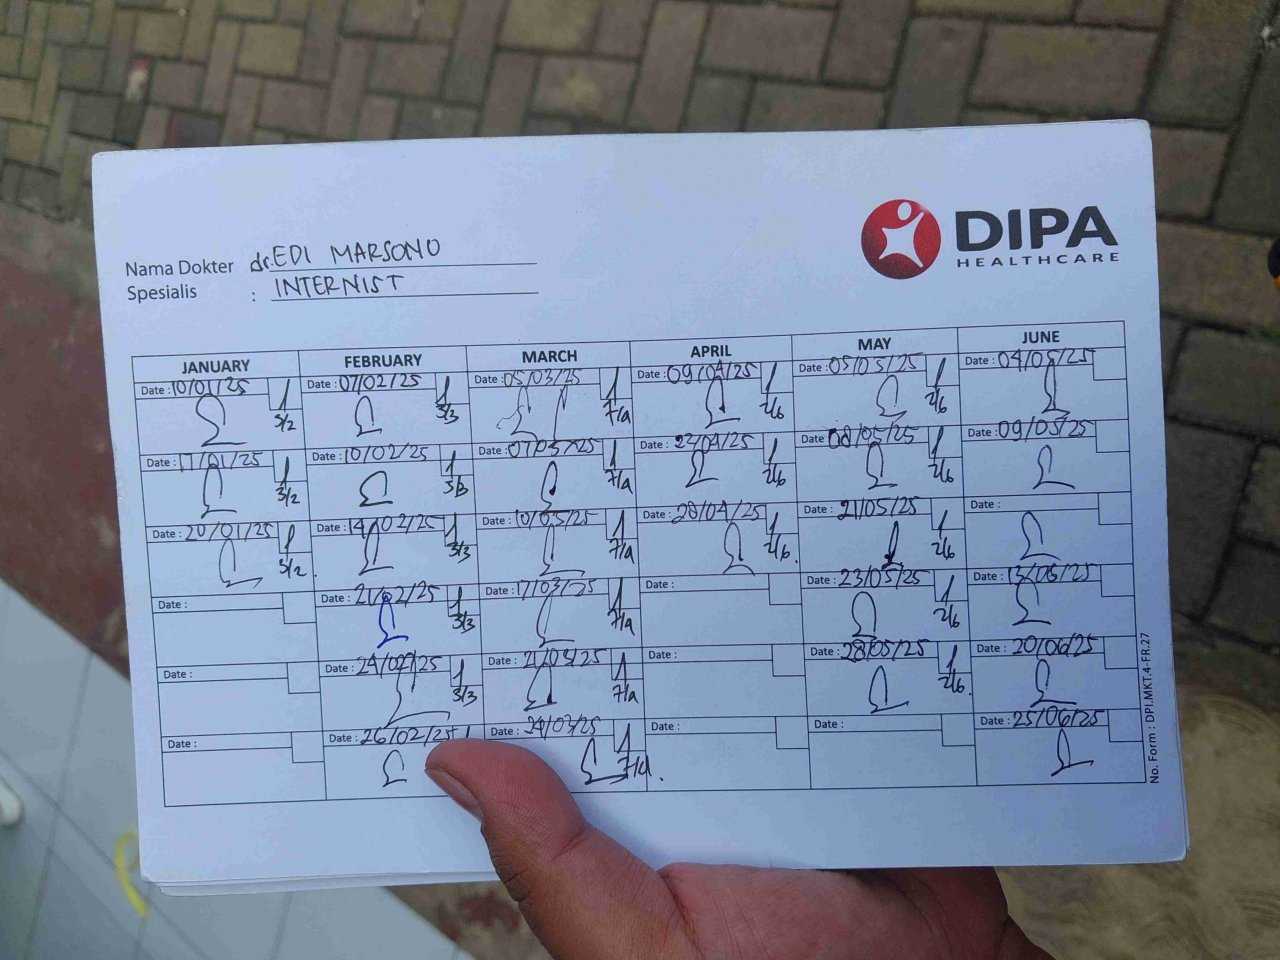 DIPA
HEALTHCARE
Nama Dokter dr. EDI MARSONO
Spesialis : INTERNIST
JANUARY FEBRUARY MARCH APRIL MAY JUNE
Date : 10/01/25 Date : 07/02/25 Date : 05/03/25 Date : 09/04/25 Date : 05/05/25 Date : 04/05/25
3/2 3/3 7/a 2/6 2/6
Date : 17/01/25 Date : 10/02/25 Date : 07/03/25 Date : 22/04/25 Date 08/05/25 Date : 09/05/25
3/2 3/3 7/a 2/6 2/6
Date : 20/01/25 Date : 14/02/25 Date : 10/03/25 Date : 28/04/25 Date : 21/05/25 Date :
3/2 3/3 7/a 2/6 2/6
Date : Date : 21/02/25 Date : 17/03/25 Date : Date : 23/05/25 Date : 13/06/25
3/3 7/a 2/6
Date : Date : 24/02/25 Date : 21/03/25 Date : Date : 28/05/25 Date : 20/06/25
3/3 7/a 2/6
Date : Date : 26/02/25 Date : 24/03/25 Date : Date : Date : 25/06/25
7/a
No. Form : DPI.MKT.4-FR.27